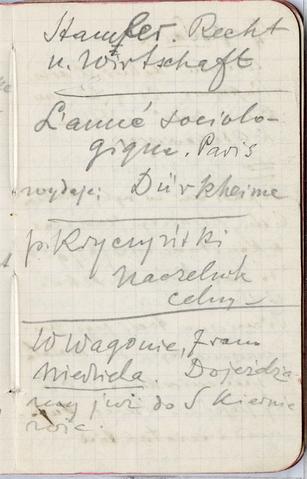 Stamler. Recht
u. Wirtschaft
L'anné sociolo-
gique. Paris
wydaje: Dürkheime
p. Kryczyński
Naczelnik
celny
W Wagonie, 7 rano
Niedziela. Dojeżdża
my już do Skiernie
wic.